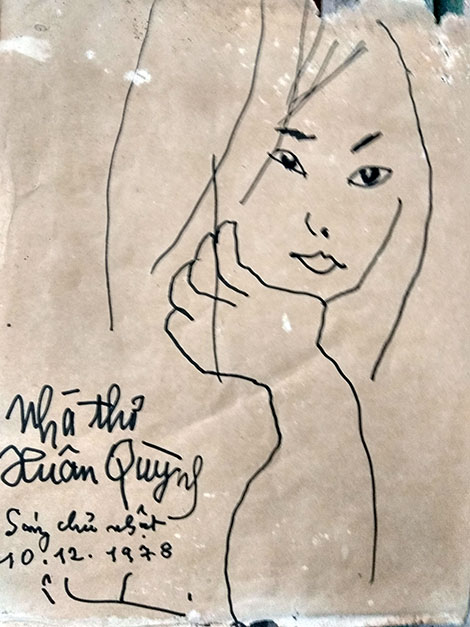 Nhà thơ
Xuân Quỳnh
Sáng chủ nhật
10.12.1978